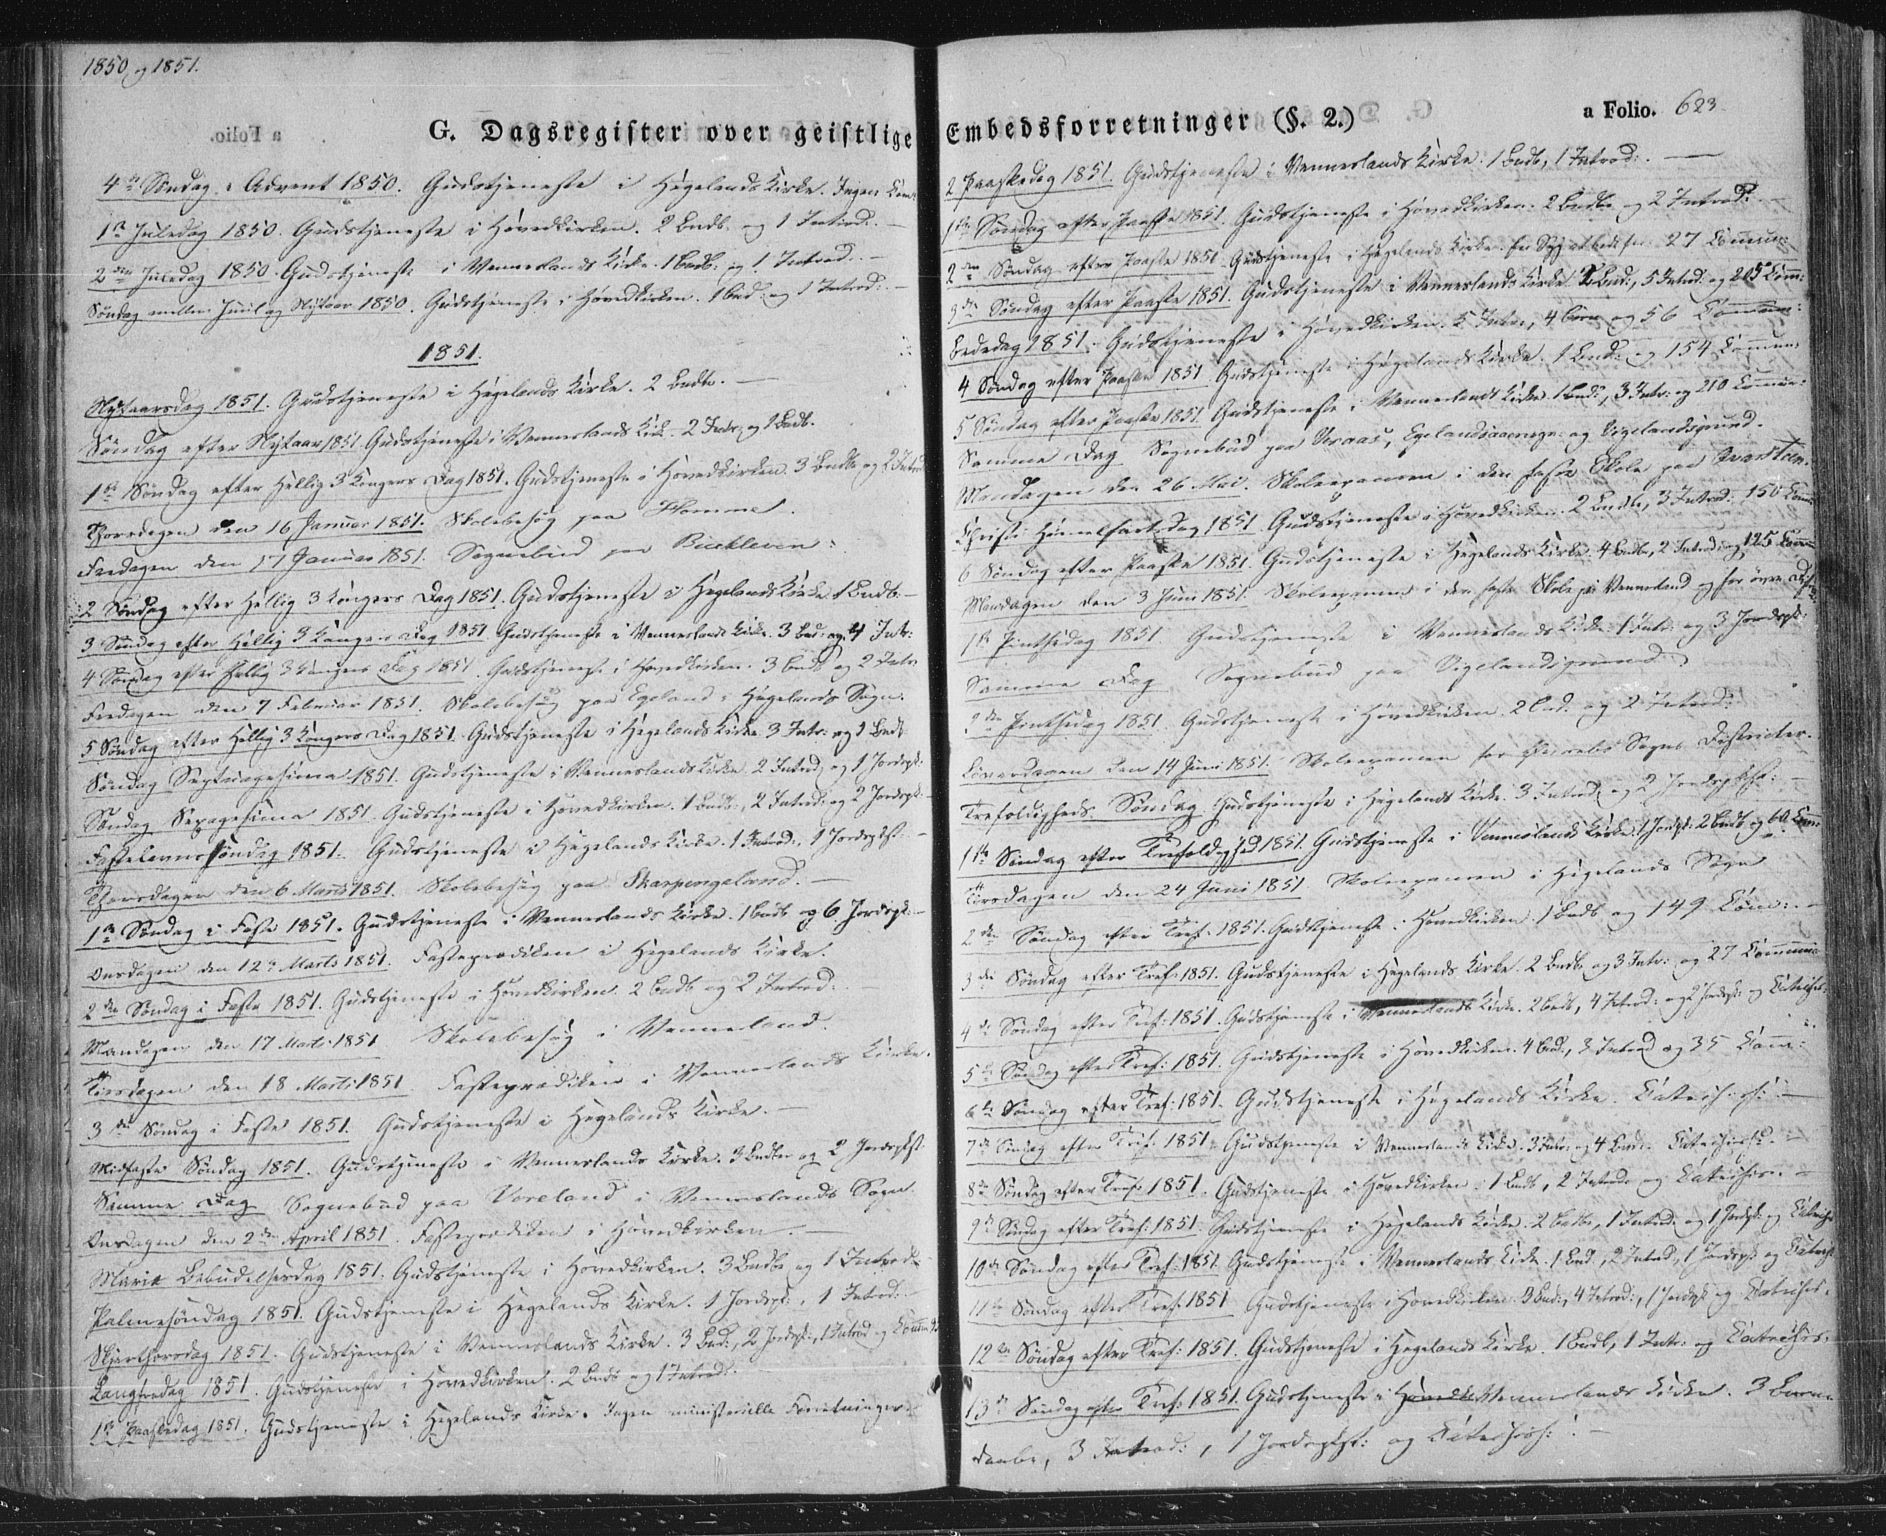 1850 og 1851.
G. Dagsregister over geistlige Embedsforretninger (§. 2.)
a Folio. 623.
4de Søndag i Advent 1850. Gudstjeneste i Hegelands Kirke. Ingen
1ste Juledag 1850. Gudstjeneste i Hovedkirken. 2 Bndb. og 1 Introd. —
2den Juledag 1850. Gudstjeneste i Vennerlands Kirke. 1 Bndb: og 1 Introd. —
Søndag mellem Juul og Nytaar 1850. Gudstjeneste i Hovedkirken. 1 Bnd: og 1 Introd: —
1851.
Nytaarsdag 1851. Gudstjeneste i Hegelands Kirke. 2 Bndb. —
Søndag efter Nytaar 1851. Gudstjeneste i Vennerlands Kirk. 2 Intr. og 1 Bndb.
1ste Søndag efter Hellig 3 Kongers Dag 1851. Gudstjeneste i Hovedkirken. 3 Bndb og 2 Introd
Thorsdagen den 16 Januar 1851. Skolebesøg paa Homme.
Fredagen den 17 Januar 1851. Sognebud paa
2 Søndag efter Hellig 3 Kongers Dag 1851. Gudstjeneste i Hegelands Kirke 1 Bndb. —
3 Søndag efter Hellig 3 Kongers Dag 1851. Gudstjeneste i Vennerlands Kirke. 3 Bnd: og 4 Intr:
4 Søndag efter Hellig 3 Kongers Dag 1851. Gudstjeneste i Hovedkirken. 3 Bndb og 2 Intr.
Fredagen den 7 Februar 1851. Skolebesøg paa Egeland i Hegelands Sogn.
5 Søndag efter Hellig 3 Kongers Dag 1851. Gudstjeneste i Hegelands Kirke 3 Intr: og 1 Bndb
Søndag Septuagesima 1851. Gudstjeneste i Vennerlands Kirke 2 Introd. og 1 Jordspk:
Søndag Sexagesima 1851. Gudstjeneste i Hovedkirken. 1 Bndb:, 2 Introd: og 2 Jordspk:
Fastelavns søndag 1851. Gudstjeneste i Hegelands Kirke. 1 Introd:, 1 Jordspkst: —
Thorsdagen den 6 Marts 1851. Skolebesøg paa Skarpengeland. —
1ste Søndag i Faste 1851. Gudstjeneste i Vennerlands Kirke. 1 Bndb og 6 Jordspk: —
Onsdagen den 12te Marts 1851. Fasteprædiken i Hegelands Kirke.
2den Søndag i Faste 1851. Gudstjeneste i Hovedkirken. 2 Bndb og 2 Introd: —
Mandagen den 17 Marts 1851 Skolebesøg i Venneland.
Tirsdagen den 18 Marts 1851 Fasteprædiken i Vennerlands Kirke.
3die Søndag i Faste 1851. Gudstjeneste i Hegelands Kirke. —
Midfaste Søndag 1851. Gudstjeneste i Vennerlands Kirke. 3 Bndbe og 2 Jordspkst
Samme Dag Sognebud paa i Vennerlands Sogn
Onsdagen den 2den April 1851. Fasteprædiken i Hovedkirken —
Mariæ Bebudelsesdag 1851. Gudstjeneste i Hovedkirken. 3 Bndbe og 1 Introd
Palmesøndag 1851. Gudstjeneste i Hegelands Kirke. 1 Jordspk:, 1 Introd: —
Skjærthorsdag 1851. Gudstjeneste i Vennerlands Kirke. 3 Bnd:, 2 Jordspk:, 1 Introd og
Langfredag 1851. Gudstjeneste i Hovedkirken. 2 Bndb og 1 Introd:
1ste Paaskedag 1851. Gudstjeneste i Hegelands Kirke. Ingen ministerielle Forretninger.
2 Paaskedag 1851. Gudstjeneste i Vennerlands Kirke. 1 Bndb, 1 Introd: —
1ste Søndag efter Paaske 1851. Gudstjeneste i Hovedkirken. 2 Bndbe og 2 Introd: —
2den Søndag efter Paaske 1851. Gudstjeneste i Hegelands Kirke. 27 Commun:
3die Søndag efter Paaske 1851. Gudstjeneste i Vennerlands Kirke Bnd:, 5 Introd: og 205 Com:
Bededag 1851. Gudstjeneste i Hovedkirken. 5 Intr:, 4 Børn og 56 Commun:
4 Søndag efter Paaske 1851. Gudstjeneste i Hegelands Kirke. 1 Bnd: og 154 Commun:
5 Søndag efter Paaske 1851. Gudstjeneste i Vennerlands Kirke 1 Bnd:, 3 Intr: og 210 Commun:
Samme Dag Sognebud paa og Vigelandsgrund.
Mandagen den 26 Mai. Skoleexamen i den faste Skole paa Kvarsteen.
Christi Himmelfartsdag 1851. Gudstjeneste i Hovedkirken. 2 Bndbe, 3 Introd: 150 Comm:
6 Søndag efter Paaske 1851. Gudstjeneste i Hegelands Kirke. 4 Bndbe, 2 Introd: og 125 Comm
Mandagen den 3 Juni 1851. Skoleexamen i den faste Skole paa Venneland og for øvre
1ste Pintsedag 1851 Gudstjeneste i Vennerlands Kirke. 1 Intr: og 3 Jordspk:
Samme Dag Sognebud paa Vigelandsgrund.
2den Pintsedag 1851. Gudstjeneste i Hovedkirken. 2 Bnd. og 2 Introd:
Løverdagen den 14 Juni 1851. Skoleexamen for Sogns Districter.
Trefoldigheds Søndag Gudstjeneste i Hegelands Kirke. 3 Introd: og 2 Jordspkst: —
1ste Søndag efter Trefoldighed 1851. Gudstjeneste i Vennerlands Kirke. 1 Jordspk: 2 Bndb og 60 Comm
Tirsdagen den 24 Juni 1851 Skoleexamen i Hegelands Sogn
2den Søndag efter Tref: 1851. Gudstjeneste i Hovedkirken. 1 Bndb og 149 Com: —
3die Søndag efter Tref: 1851. Gudstjeneste i Hegelands Kirke. 2 Bndbe og 3 Intr: og 27 Commun
4de Søndag efter Tref: 1851. Gudstjeneste i Vennerlands Kirke. 2 Bndb, 4 Introd: og 2 Jordspk: og Catechis:
5te Søndag efter Tref: 1851. Gudstjeneste i Hovedkirken. 4 Bnd:, 3 Introd og 35 Com:
6te Søndag efter Tref: 1851. Gudstjeneste i Hegelands Kirke. Catechis: —
7de Søndag efter Tref: 1851. Gudstjeneste i Vennerlands Kirke. 3 Intr: og 4 Bnd: Catechis: —
8de Søndag efter Tref: 1851. Gudstjeneste i Hovedkirken. 1 Bndb, 2 Introd: og Catechis: —
9de Søndag efter Tref: 1851. Gudstjeneste i Hegelands Kirke. 2 Bndbe, 1 Introd: og 1 Jordspk: og Catechis
10de Søndag efter Tref: 1851. Gudstjeneste i Vennerlands Kirke. 1 Bnd:, 2 Introd:, 1 Jordspk: og Catech
11te Søndag efter Tref: 1851 Gudstjeneste i Hovedkirken. 3 Bnd:, 4 Introd:, 1 Jordspk og Catechis.
12te Søndag efter Tref: 1851. Gudstjeneste i Hegelands Kirke. 1 Bndb, 1 Intr: og Catechis:
13de Søndag efter Tref: 1851. Gudstjeneste i Vennerlands Kirke. 3 Barne
daabe, 3 Introd:, 1 Jordspkst: og Catechis: —